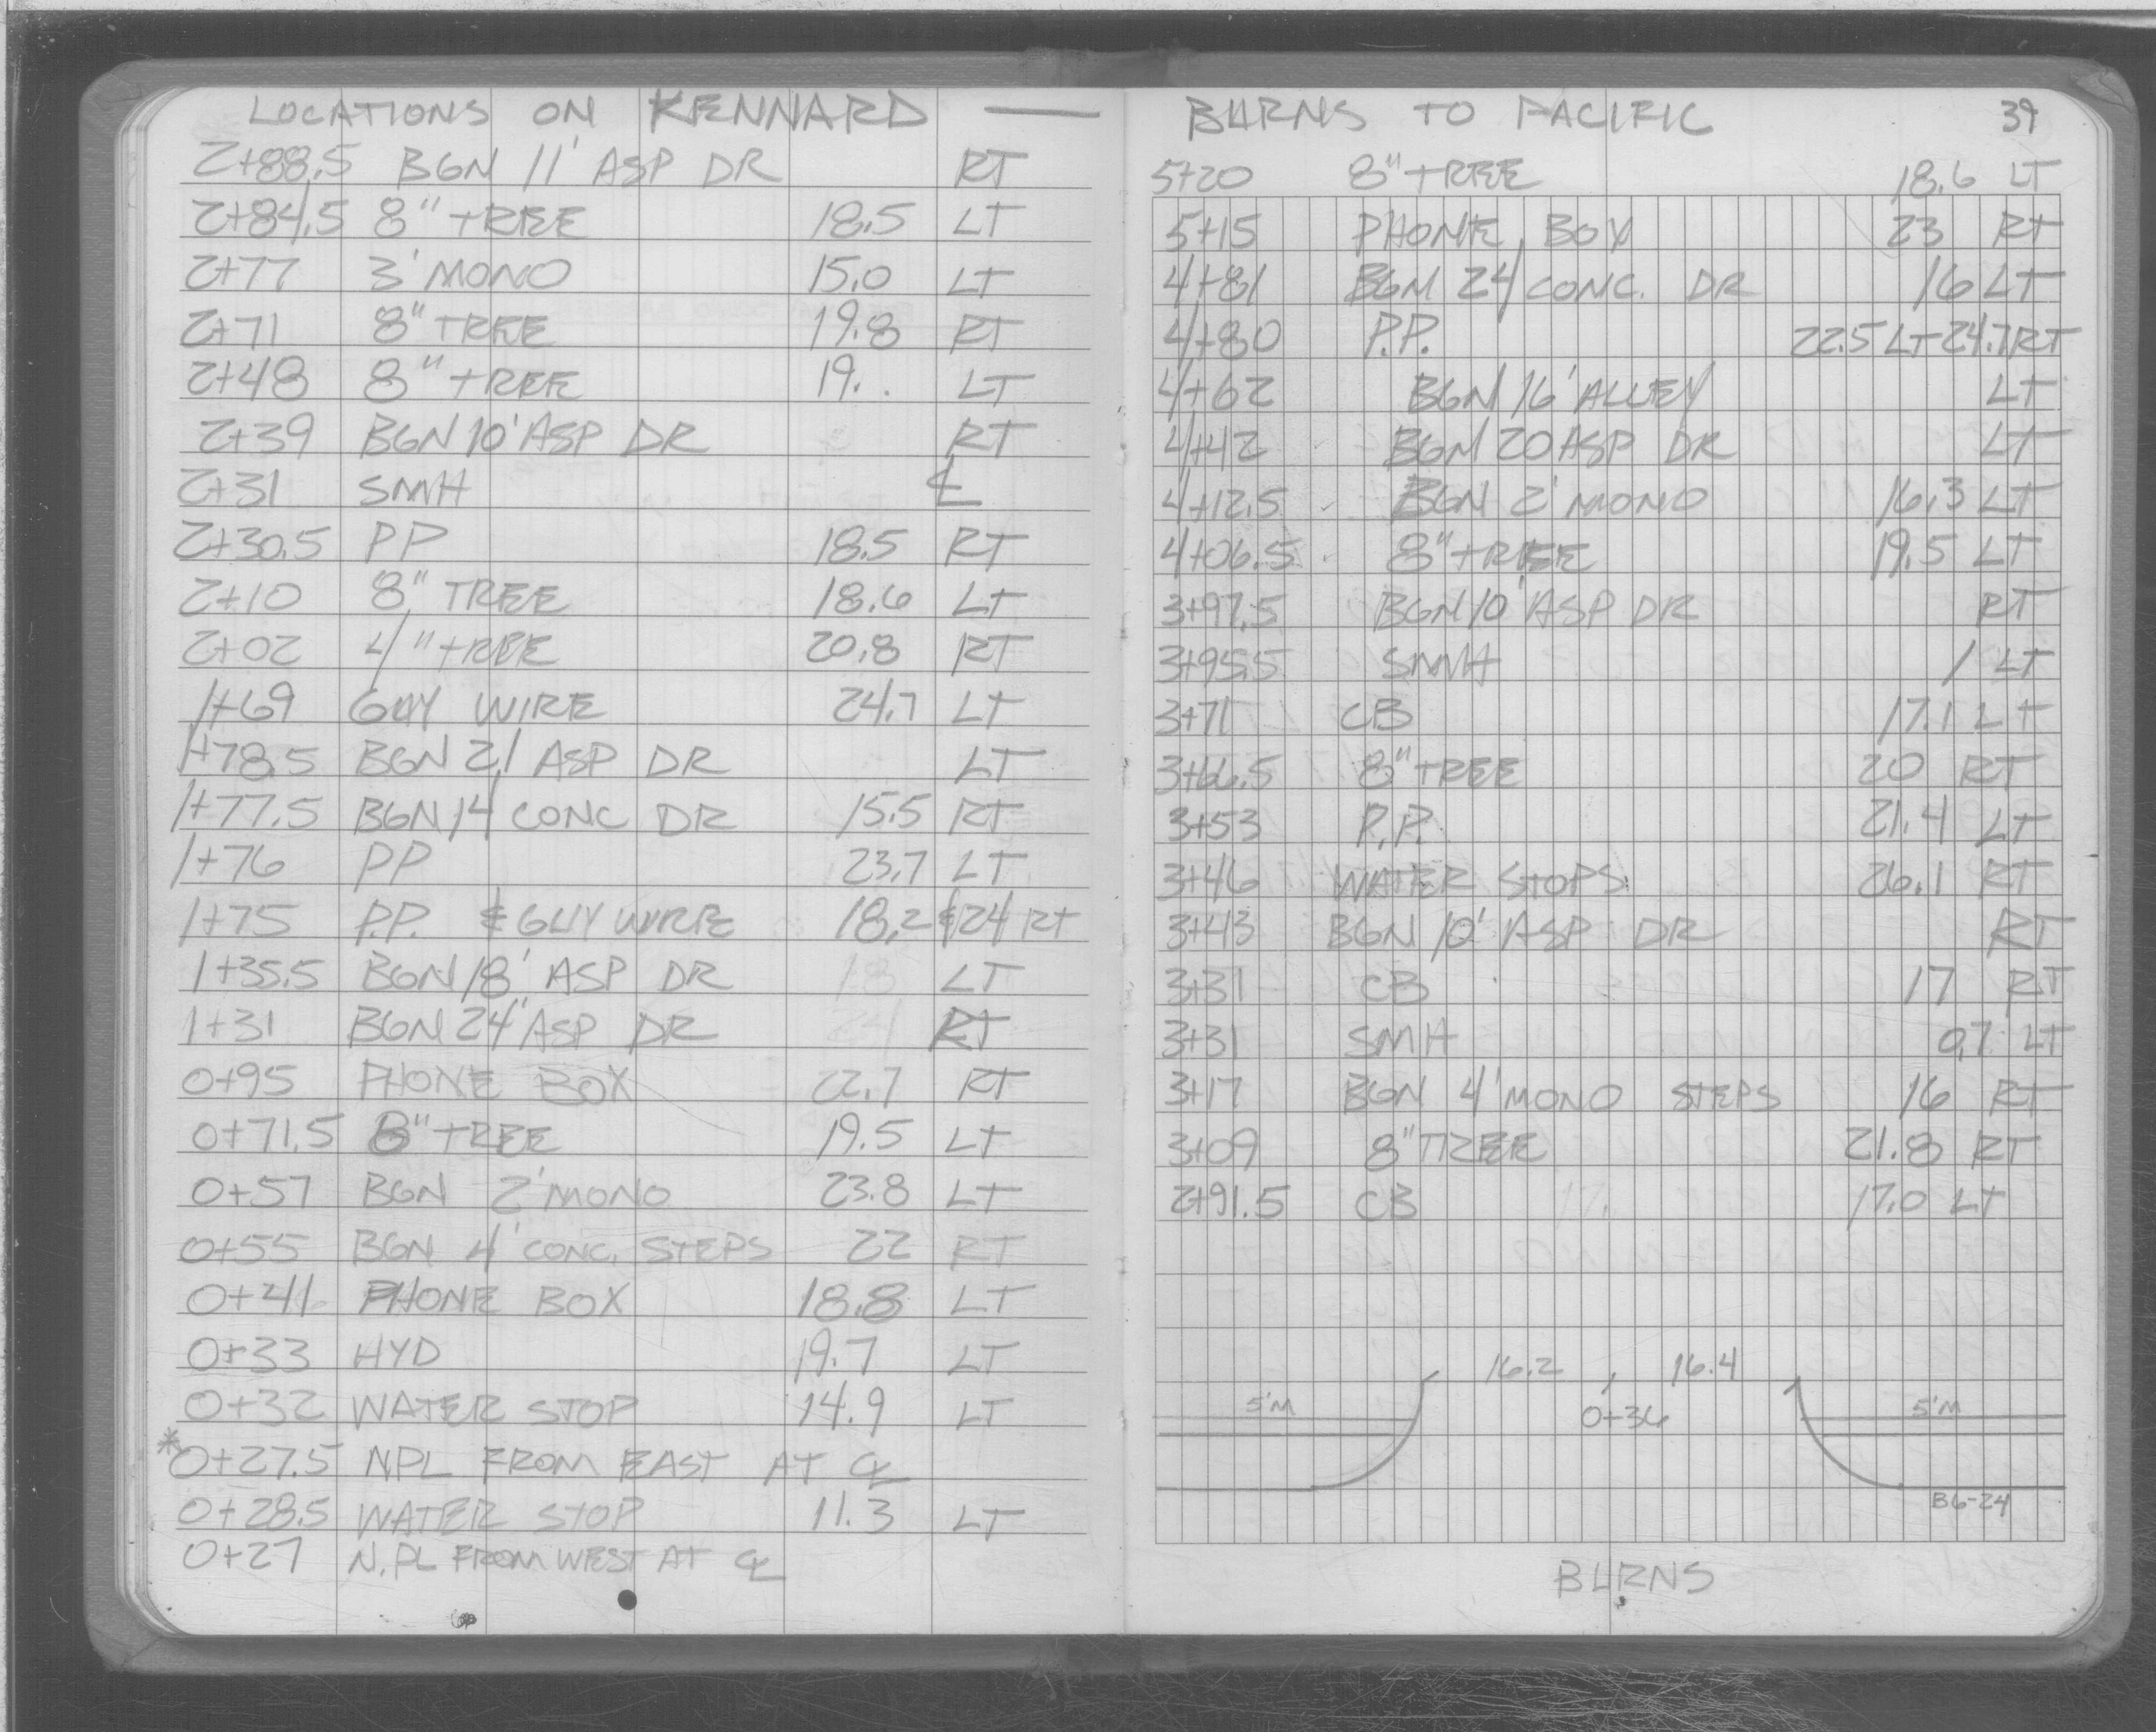 LOCATIONS ON KENNARD —
2+88.5 BGN 11' ASP DR RT
2+84.5 8" TREE 18.5 LT
2+77 3' MONO 15.0 LT
2+71 8" TREE 19.8 RT
2+48 8" TREE 19. LT
2+39 BGN 10' ASP DR RT
2+31 SMH ℄
2+30.5 PP 18.5 RT
2+10 8" TREE 18.6 LT
2+02 4" TREE 20.8 RT
1+69 GUY WIRE 24.7 LT
1+78.5 BGN 21 ASP DR LT
1+77.5 BGN 14 CONC DR 15.5 RT
1+76 PP 23.7 LT
1+75 P.P. & GUY WIRE 18.2 & 24 RT
1+35.5 BGN 18' ASP DR LT
1+31 BGN 24' ASP DR RT
0+95 PHONE BOX 22.7 RT
0+71.5 8" TREE 19.5 LT
0+57 BGN 2' MONO 23.8 LT
0+55 BGN 4' CONC. STEPS 22 RT
0+41 PHONE BOX 18.8 LT
0+33 HYD 19.7 LT
0+32 WATER STOP 14.9 LT
*0+27.5 NPL FROM EAST AT ℄
0+28.5 WATER STOP 11.3 LT
0+27 N.PL FROM WEST AT ℄
BURNS TO PACIFIC 39
5+20 8" TREE 18.6 LT
5+15 PHONE BOX 23 RT
4+81 BGN 24' CONC. DR 16 LT
4+80 P.P. 22.5 LT 24.7 RT
4+62 BGN 16' ALLEY LT
4+42 BGN 20 ASP DR LT
4+12.5 BGN 2' MONO 16.3 LT
4+06.5 8" TREE 19.5 LT
3+97.5 BGN 10' ASP DR RT
3+95.5 SMH 1 LT
3+71 CB 17.1 LT
3+66.5 8" TREE 20 RT
3+53 P.P. 21.4 LT
3+46 WATER STOPS 26.1 RT
3+43 BGN 10' ASP DR RT
3+31 CB 17 RT
3+31 SMH 0.7 LT
3+17 BGN 4' MONO STEPS 16 RT
3+09 8" TREE 21.8 RT
2+91.5 CB 17.0 LT
16.2 16.4
5'M 0+36 5'M
B6-24
BURNS